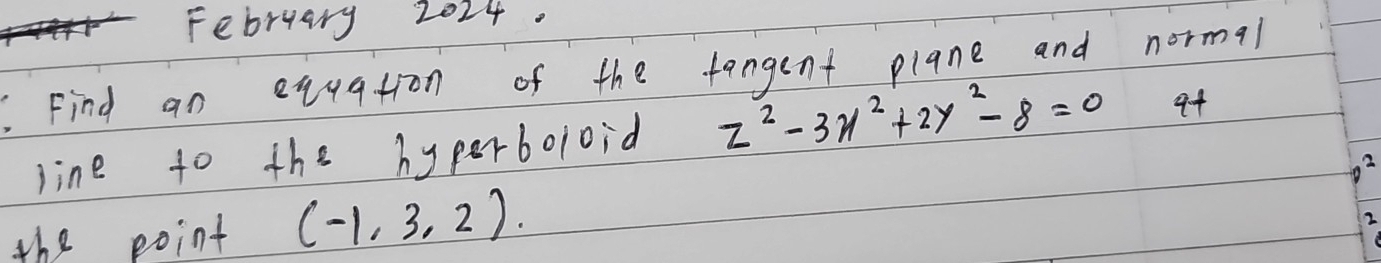 February 2024.
: Find an equation of the tangent plane and normal
line to the hyperboloid z² - 3x² + 2y² - 8 = 0 at
the point (-1, 3, 2).